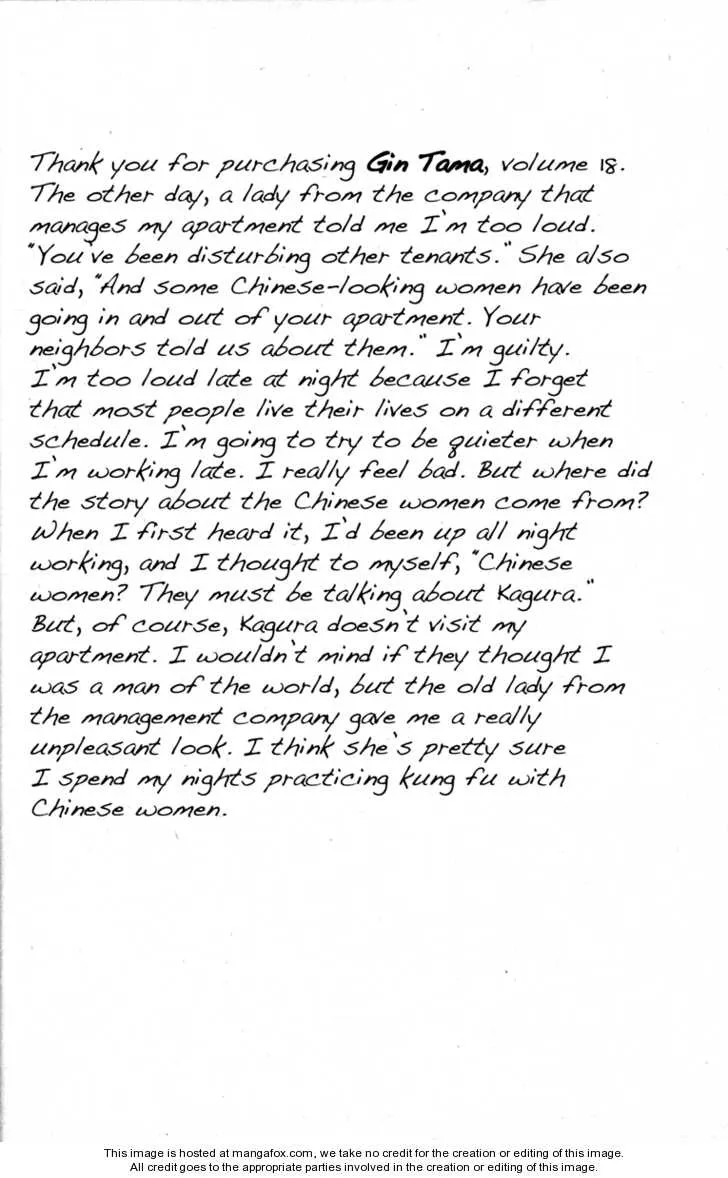 Thank you for purchasing Gin Tama, volume 18.
The other day, a lady from the company that
manages my apartment told me I'm too loud.
"You've been disturbing other tenants." She also
said, "And some Chinese-looking women have been
going in and out of your apartment. Your
neighbors told us about them." I'm guilty.
I'm too loud late at night because I forget
that most people live their lives on a different
schedule. I'm going to try to be quieter when
I'm working late. I really feel bad. But where did
the story about the Chinese women come from?
When I first heard it, I'd been up all night
working, and I thought to myself, "Chinese
women? They must be talking about Kagura."
But, of course, Kagura doesn't visit my
apartment. I wouldn't mind if they thought I
was a man of the world, but the old lady from
the management company gave me a really
unpleasant look. I think she's pretty sure
I spend my nights practicing kung fu with
Chinese women.
This image is hosted at mangafox.com, we take no credit for the creation or editing of this image.
All credit goes to the appropriate parties involved in the creation or editing of this image.